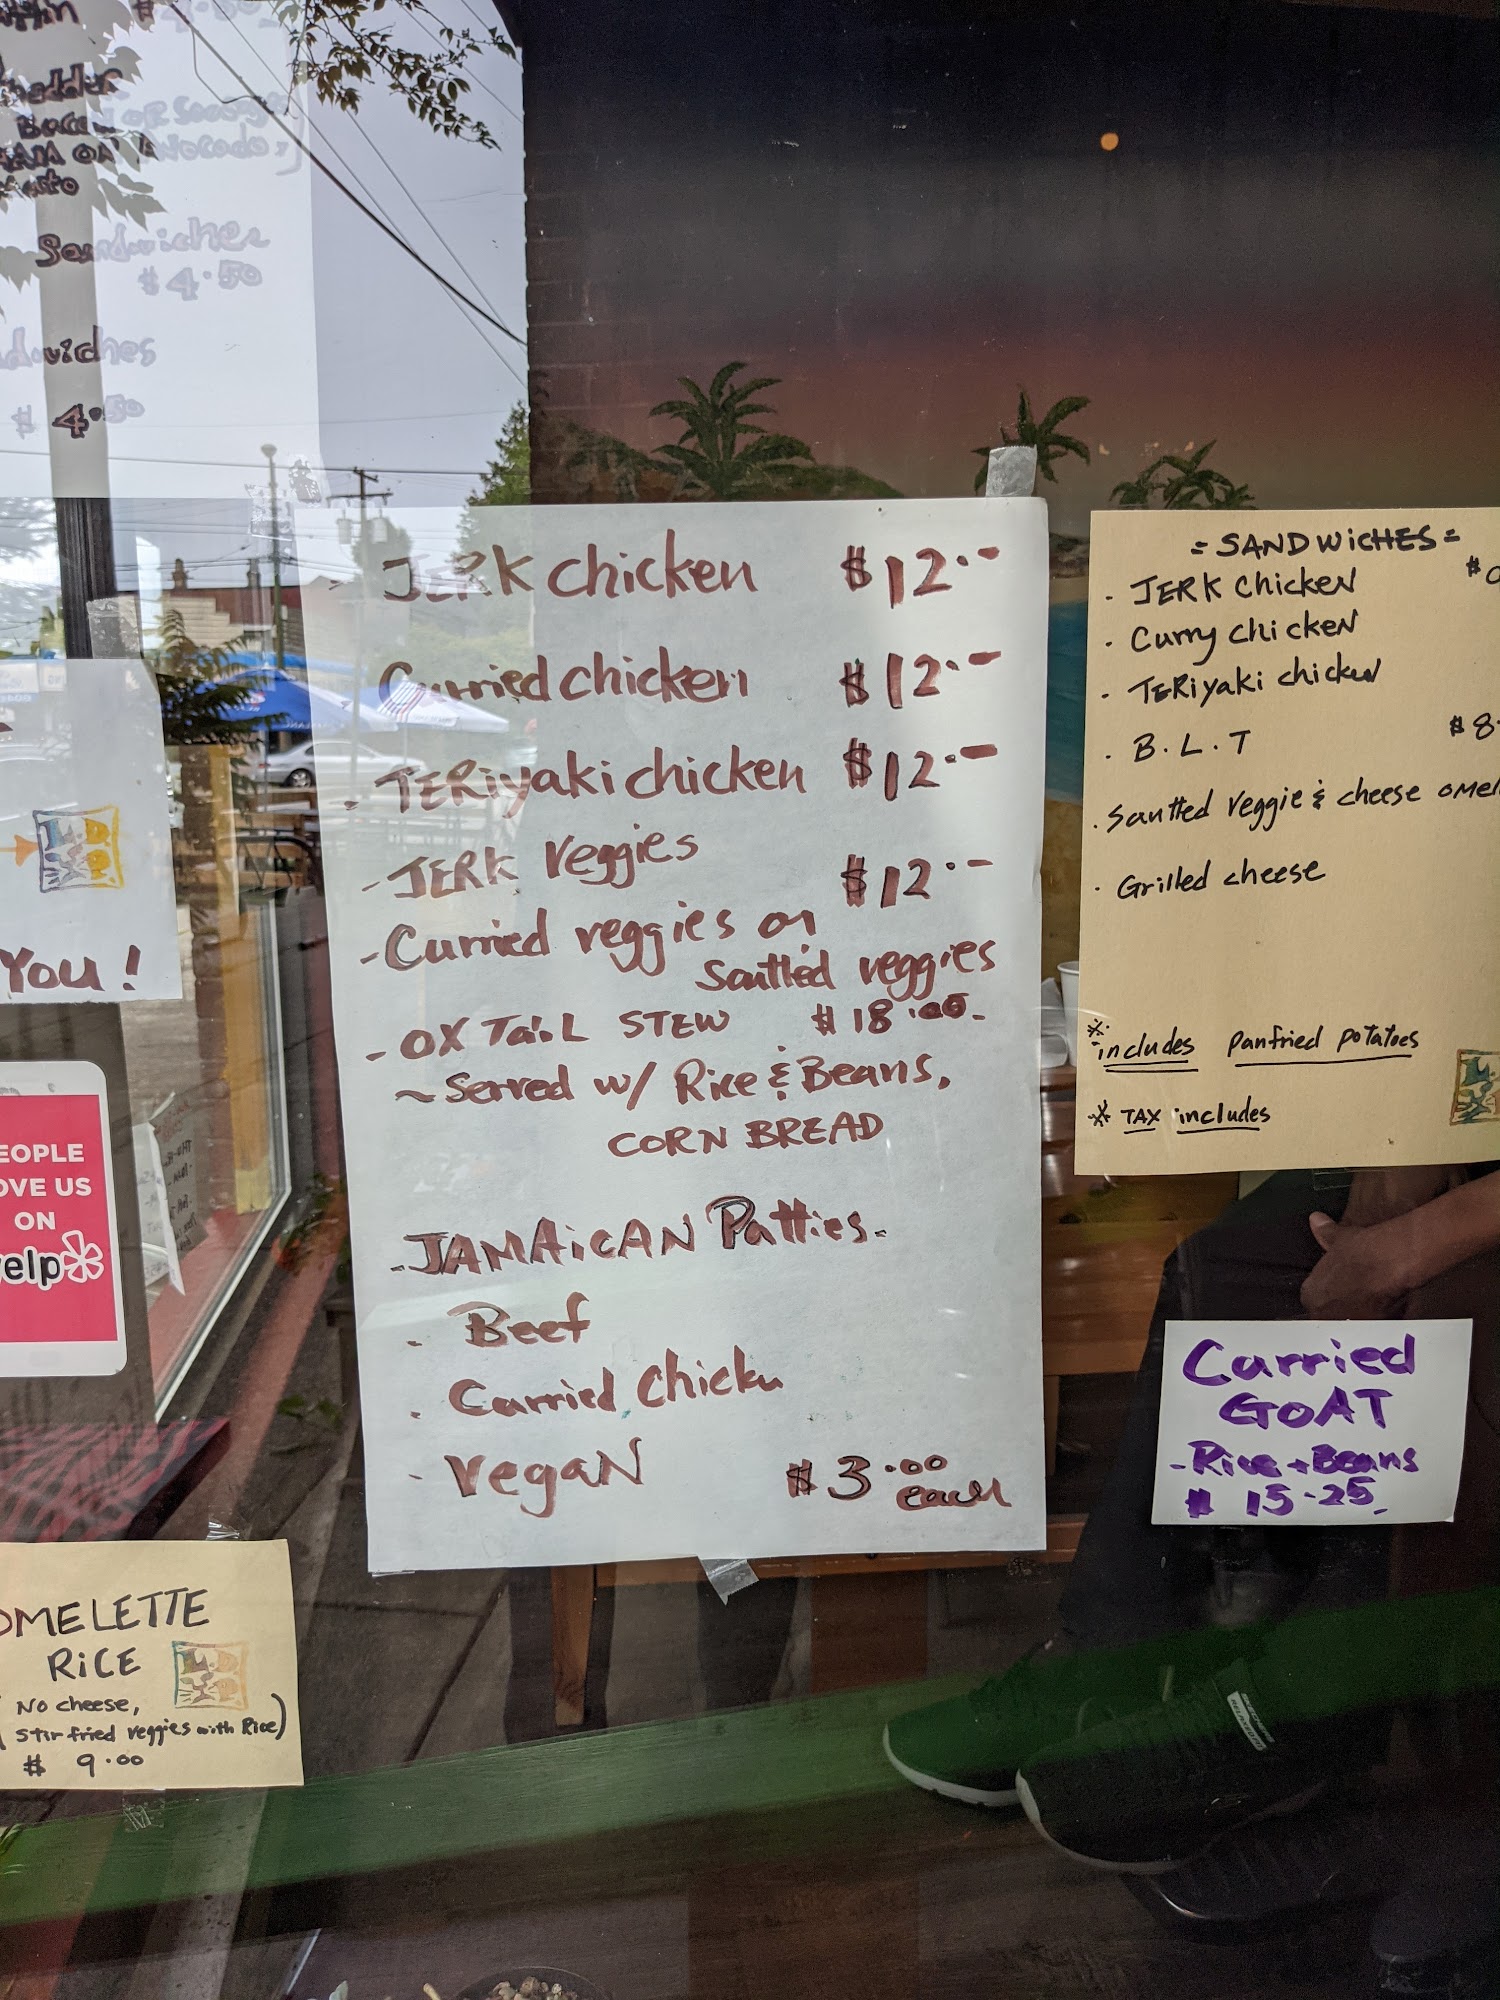 Bacon
HAM OR Avocado,
Sandwiches
$4.50
$4.50
You!
PEOPLE
LOVE US
ON
yelp
OMELETTE
RiCE
(No cheese,
Stir fried veggies with Rice)
$ 9.00
- JERK chicken $12.-
Curried chicken $12.-
. TERiyaki chicken $12.-
- JERK Veggies $12.-
- Curried veggies or
Sauttéd veggies
- OX TaiL STEW $18.00-
~ Served w/ Rice & Beans,
CORN BREAD
- JAMAiCAN Patties.
. Beef
. Curried Chicken
- VegaN $3.00
each
= SANDWiCHES =
. JERK ChickeN
. Curry chickeN
. TERiyaki chicken
. B.L.T $8
. Sautted veggie & cheese
. Grilled cheese
* includes panfried potatoes
* TAX includes
Curried
GOAT
- Rice + Beans
$ 15.25